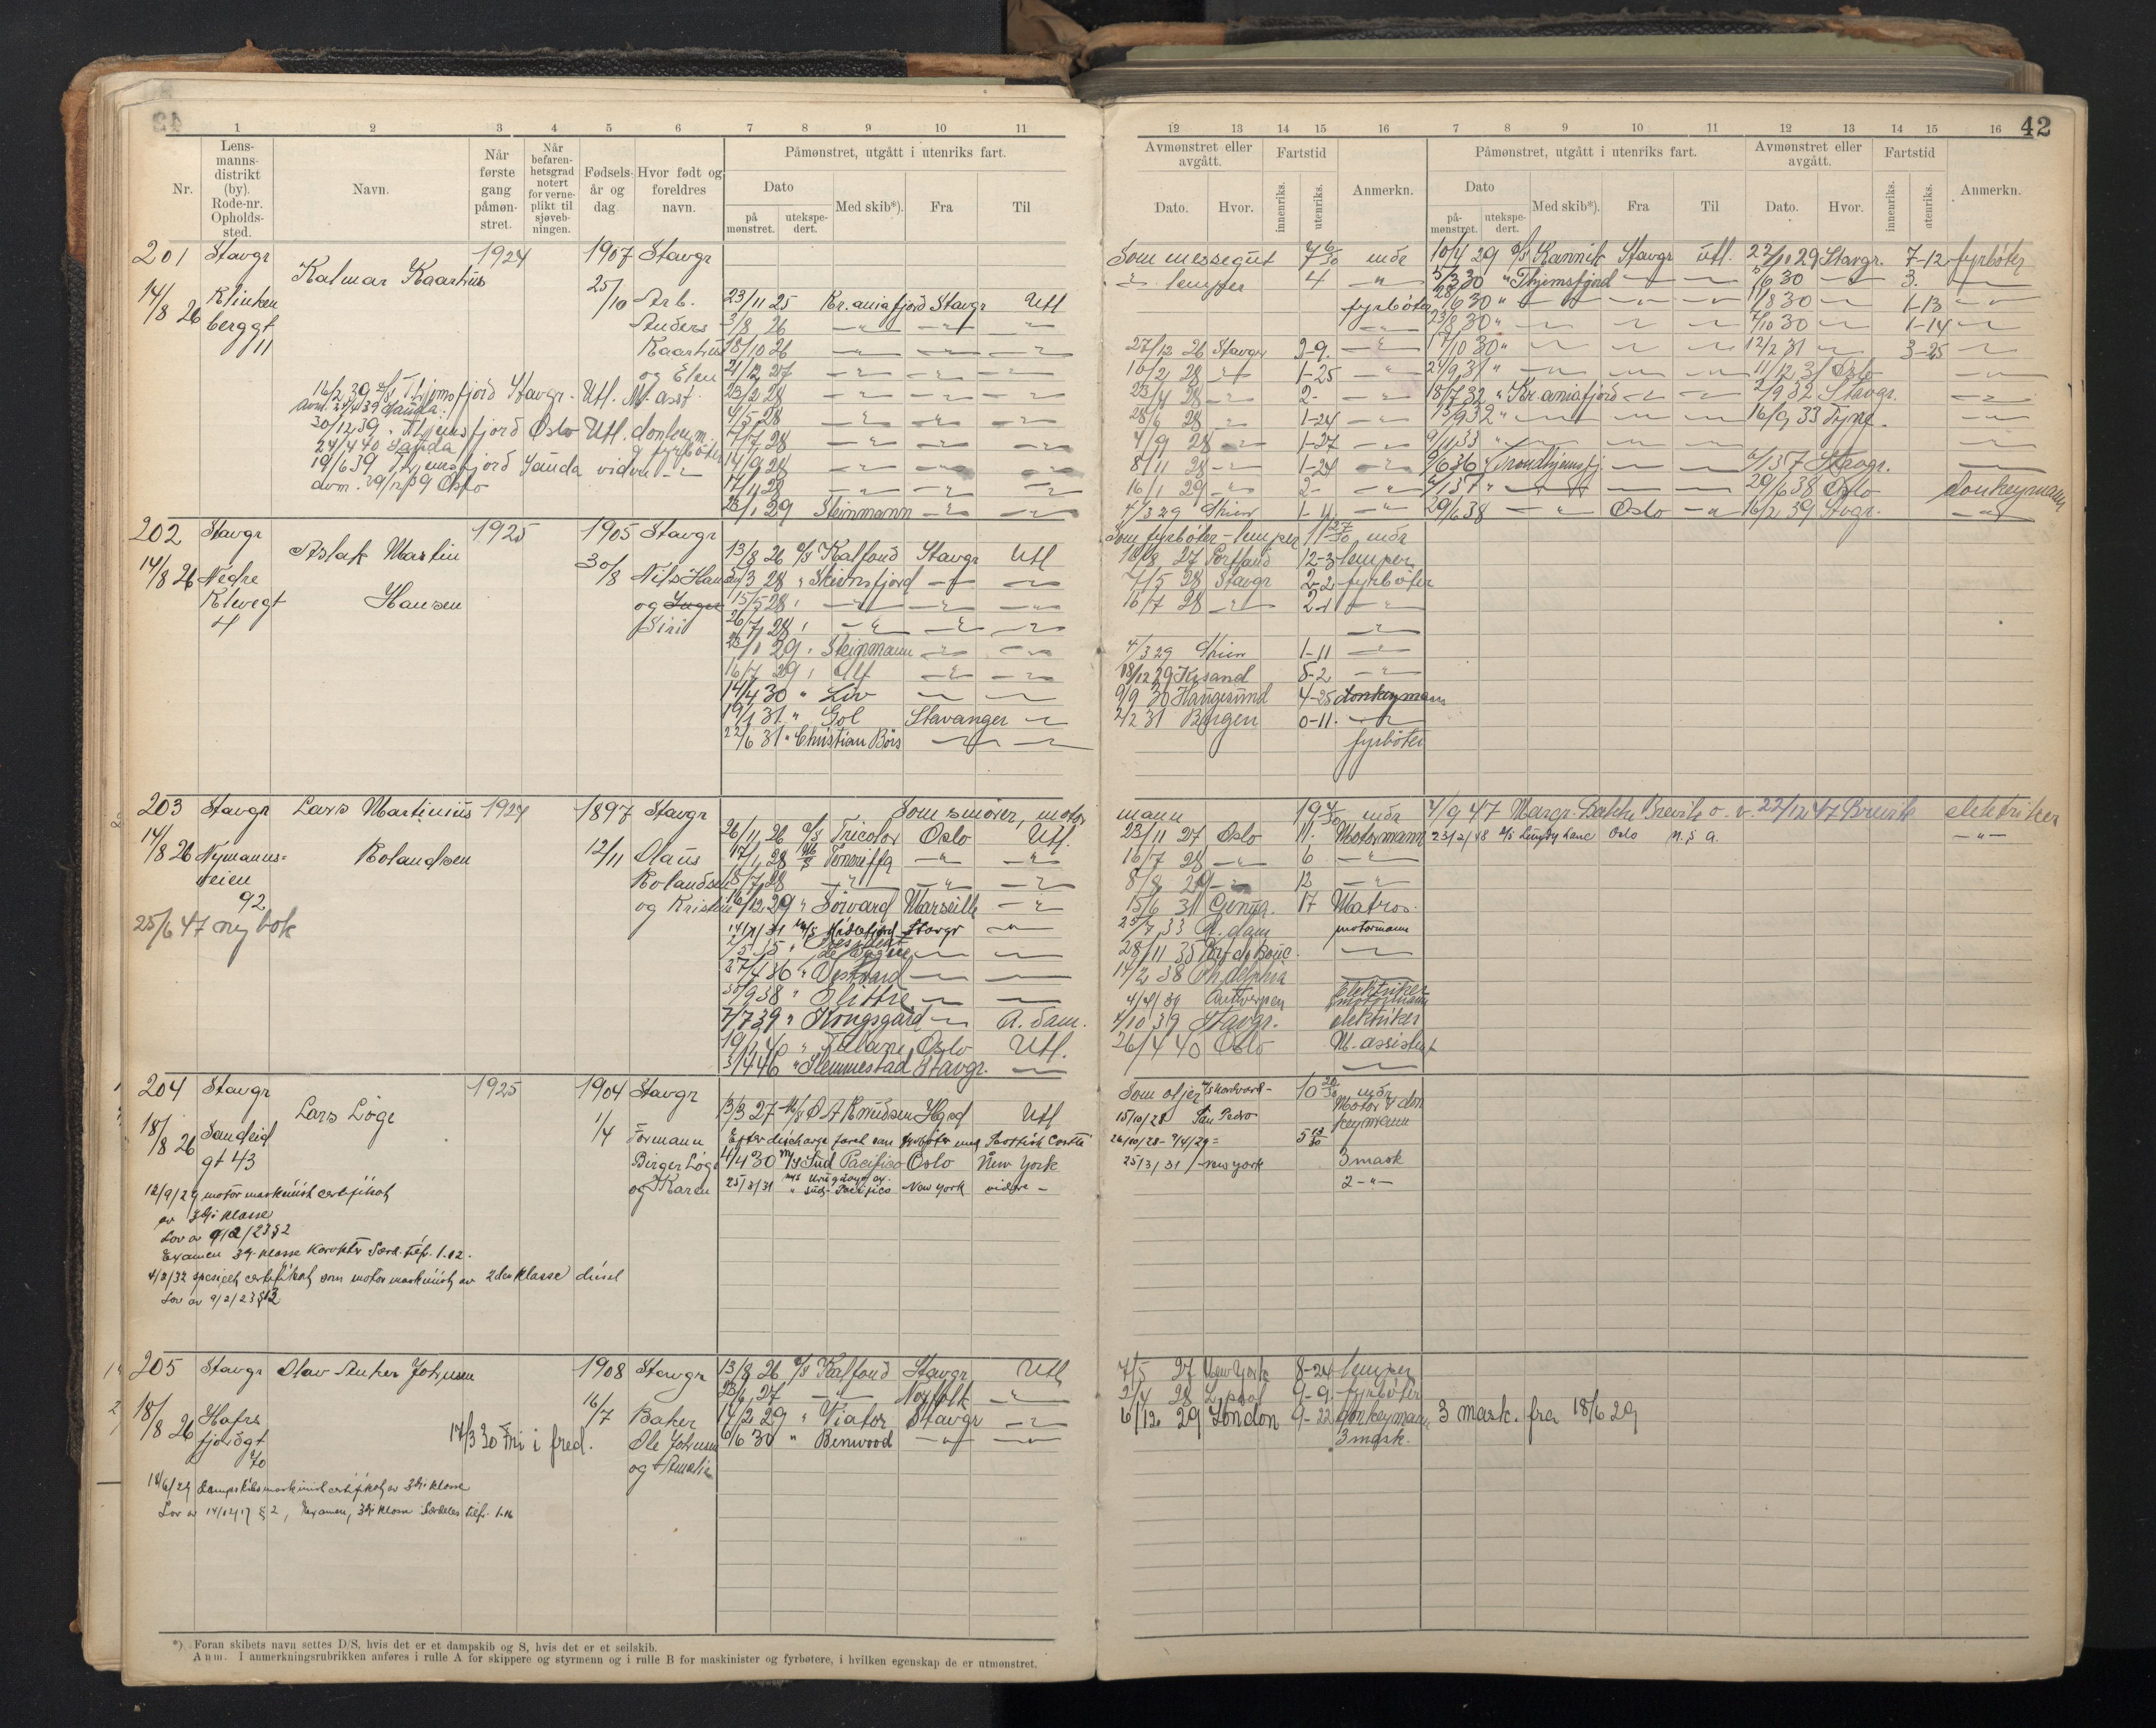 42
1 2 3 4 5 6 7 8 9 10 11
12 13 14 15 16 7 8 9 10 11 12 13 14 15 16
Nr.
Lens-
manns-
distrikt
(by).
Rode-nr.
Opholds-
sted.
Navn.
Når
første
gang
påmøn-
stret.
Når
befaren-
hetsgrad
notert
for verne-
plikt til
sjøveb-
ningen.
Fødsels-
år og
dag
Hvor født og
foreldres
navn.
Påmønstret, utgått i utenriks fart.
Dato
på
mønstret.
utekspe-
dert.
Med skib*).
Fra
Til
Avmønstret eller
avgått.
Dato.
Hvor.
Fartstid
innenriks.
utenriks.
Anmerkn.
Påmønstret, utgått i utenriks fart.
Dato
på-
mønstret.
utekspe-
dert.
Med skib*).
Fra
Til
Avmønstret eller
avgått.
Dato.
Hvor.
Fartstid
innenriks.
utenriks.
Anmerkn.
201 Stavgr 1924 1907 Stavgr
Kalmar Kaarhus
14/8 26 Klinken
berggt
11
25/10 Arb.
Anders
Kaarhus
og Elen
23/11 25 Kr.aniafjord Stavgr Utl
3/8 26
18/10 26
21/12 27
23/2 28
4/5 28
7/7 28
14/9 28
17/11 28
23/1 29 Steinmann
16/2 39 Stavgr - Utl. M. asst.
Avm. 24/4 39 Sauda
30/12 39 Oslo Utl. donkeym.
24/4 40 Sauda
19/6 39 Sauda
avm. 29/12 39 Oslo
Som messegut 7 6/30 mdr
lemper 4
fyrbøter
27/12 26 Stavgr 2-9
16/2 28 1-25
23/4 28 2-
28/6 28 1-24
4/9 28 1-27
8/11 28 1-24
16/1 29 2-
4/3 29 Skien 1-11
10/4 29 D/S Kannik Stavgr utl. 22/11 29 Stavgr. 7-12 fyrbøter
5/3 30 5/6 30 3.
11/8 30 1-13
23/8 30 7/10 30 1-14
17/10 30 12/2 31 3-25
24/9 31 11/12 31 Oslo
18/7 32 Kr.aniafjord 2/9 32 Stavgr.
15/9 32 16/9 33 Tyne
9/11 33
9/6 36 Trondhjemsfj. 6/1 37 Stavgr.
29/6 38 Oslo donkeymann
29/6 38 Oslo 16/2 39 Stvgr.
202 Stavgr 1925 1905 Stavgr
Aslak Martin
Hansen
14/8 26 Nedre
Klevegt
4
30/8 Nils Hansen
og Inger
Siri
13/8 26 D/S Kalfond Stavgr Utl
5/3 28
15/5 28
26/7 28
23/1 29 Steinmann
16/7 29 Alf
14/4 30 Liv
19/1 31 Gol Stavanger
22/6 31 Christian Börs
Som fyrbøter - lemper 11 27/30 mdr
10/8 27 Portland 12-3 lemper
7/5 28 Stavgr 2-2 fyrbøter
16/7 28 2-1
4/3 29 Skien 1-11
18/12 29 Krsand 5-2
9/9 30 Haugesund 4-25 donkeymann
2/2 31 Bergen 0-11.
fyrbøter
203 Stavgr Lars Martinius 1924 1897 Stavgr
Rolandsen
14/8 26 Nymanns-
veien
92
25/6 47 ny bok
12/11 Olaus
Rolandsen
og Kristine
Som smører, motor
mann 19 mdr
26/11 26 D/S Tricolor Oslo Utl.
17/1 28 M/S Teneriffa
18/7 28
16/12 29 Torvard Marseille
14/11 31 M/S Stavgr
27/4 36 Vestvard
30/9 38
7/7 39 Kongsgård A.dam.
19/1 40 Tulane Oslo Utl.
3/4 46 Slemmestad Stavgr.
23/11 27 Oslo 11. Motormann
16/7 28 6
8/8 29 12
15/6 31 Genua. 17 Matros
25/7 33 A.dam motormann
28/11 35 Port de Bouc
14/2 38 Phdelphia
Elektriker
4/4/39 Antwerpen motormann
4/10 39 Stavgr. elektriker
26/4 40 Oslo M-assistent
4/9 47 Margr. Bakke Brevik o. v. 22/12 47 Brevik elektriker
23/2/48 M/S Lundy Lane Oslo N. S. A.
204 Stavgr 1925 1904 Stavgr
Lars Löge
18/8 26 Sandeid
gt 43
1/4 Formann
Birger Löge
og Karen
13/3 27 M/S O A Knudsen Hgsd Utl
Efter discharge faret som fyrbøter med Scottish Castle
4/4 30 M/S Sud Pacifico Oslo New York
25/3/31 New York videre -
12/9/29 motor maskinist certifikat
av 3dje klasse
Lov av 9/2/23 § 2
Examen 3dj. klasse Karakter Særd. tilfr. 1.12.
4/2/32 spesielt certifikat som motormaskinist av 2den klasse diesel
Lov av 9/2/23 § 12
Som oljer 10 20/30 mdr
15/10/28 San Pedro Motor & don
keymann
26/10/28 - 9/4/29 = 5 13/30
25/3/31 New york 3 mask
2 - " -
205 Stavgr Olav Anker Johnsen 1908 Stavgr
18/8 26 Hafrs
fjordgt
70
16/7 Baker
Ole Johnsen
og Amalie
17/3 30 Fri i fred.
13/8 26 D/S Kalfond Stavgr Utl
23/6 27 Norfolk
17/2 29 Viator Stavgr
6/6 30 Benwood
18/6/29 Dampskibsmaskinistcertifikat av 3dje klasse
Lov av 14/12/17 § 2, Examen, 3dje klasse Særdeles tilfr. 1.16
7/5 27 New York 8-24 lemper
2/4 28 L.pool 9-9. fyrbøter
6/12 29 London 9-22 donkeymann 3 mask. fra 18/6 29
3 mask.
*) Foran skibets navn settes D/S, hvis det er et dampskib og S, hvis det er et seilskib.
Anm. I anmerkningsrubrikken anføres i rulle A for skippere og styrmenn og i rulle B for maskinister og fyrbøtere, i hvilken egenskap de er utmønstret.